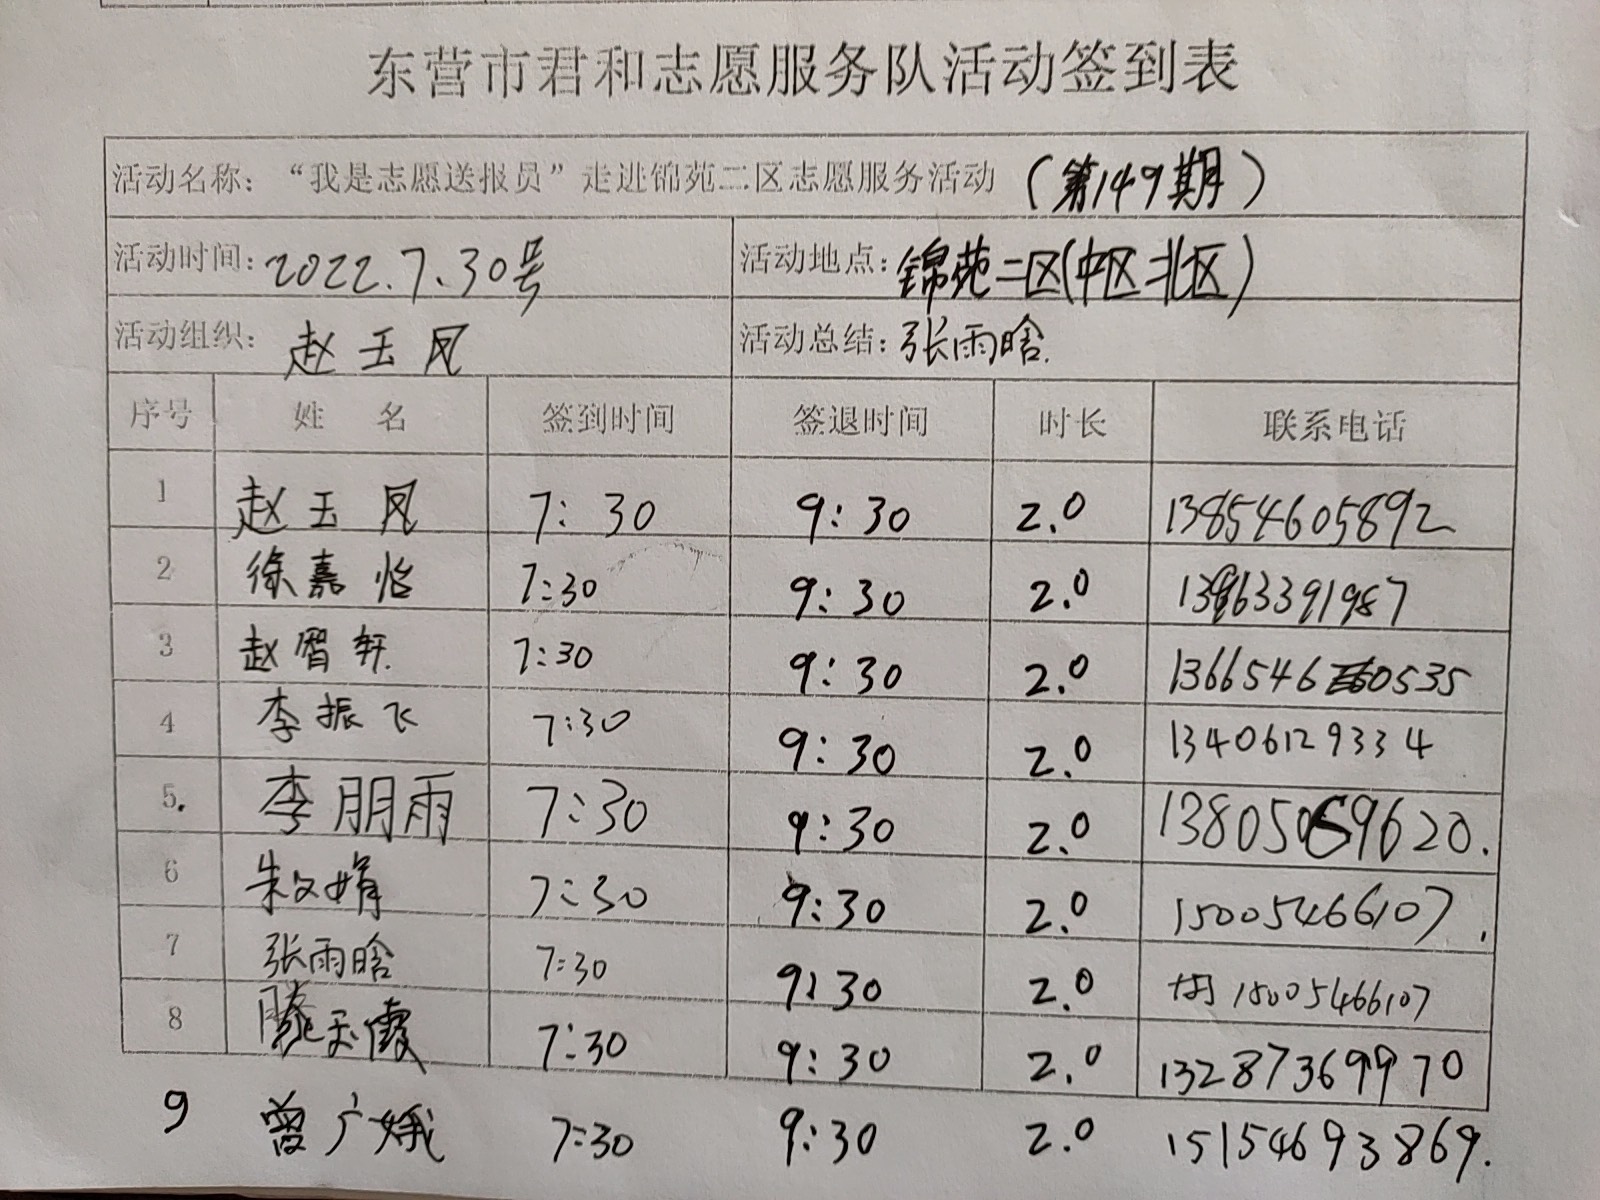 东营市君和志愿服务队活动签到表
活动名称：“我是志愿送报员”走进锦苑二区志愿服务活动（第149期）
活动时间：2022.7.30号 活动地点：锦苑二区(中区北区)
活动组织：赵玉凤 活动总结：张雨晗.
序号 姓名 签到时间 签退时间 时长 联系电话
1 赵玉凤 7:30 9:30 2.0 13854605892
2 徐嘉怡 7:30 9:30 2.0 13963391987
3 赵智轩 7:30 9:30 2.0 1366546 0535
4 李振飞 7:30 9:30 2.0 13406129334
5. 李朋雨 7:30 9:30 2.0 9620.
6 朱文娟 7:30 9:30 2.0 15005466107.
7 张雨晗 7:30 9:30 2.0 15005466107
8 滕玉霞 7:30 9:30 2.0 13287369970
9 曾广娥 7:30 9:30 2.0 15154693869.